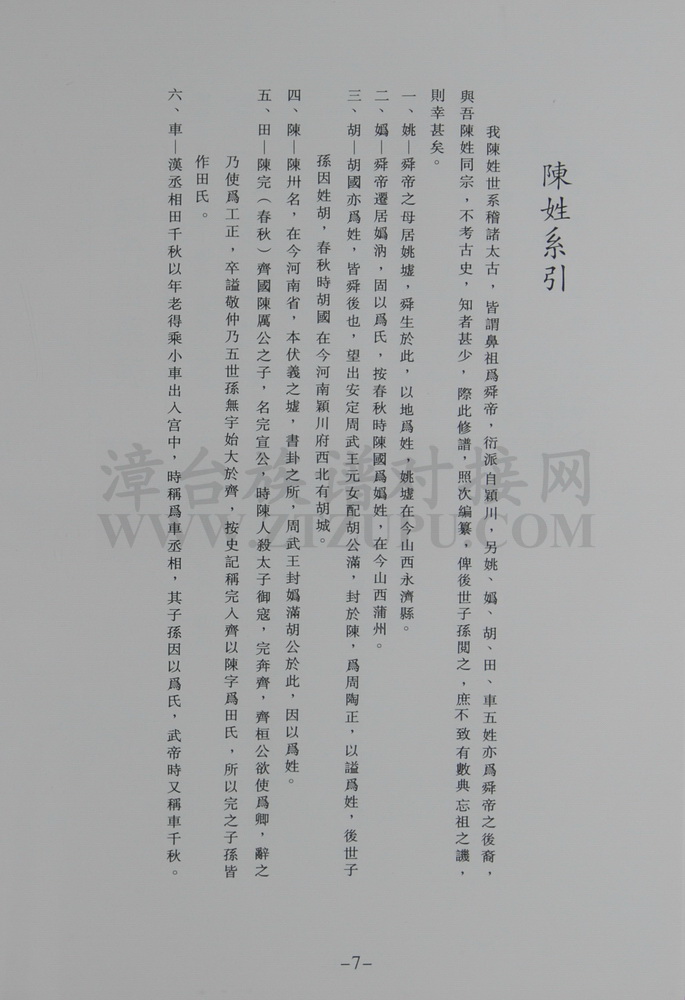 陳姓系引
我陳姓世系稽諸太古，皆謂鼻祖爲舜帝，衍派自穎川，另姚、嬀、胡、田、車五姓亦爲舜帝之後裔，
與吾陳姓同宗，不考古史，知者甚少，際此修譜，照次編纂，俾後世子孫閱之，庶不致有數典忘祖之譏，
則幸甚矣。
一、姚—舜帝之母居姚墟，舜生於此，以地爲姓，姚墟在今山西永濟縣。
二、嬀—舜帝遷居嬀汭，固以爲氏，按春秋時陳國爲嬀姓，在今山西蒲州。
三、胡—胡國亦爲姓，皆舜後也，望出安定周武王元女配胡公滿，封於陳，爲周陶正，以謚爲姓，後世子
孫因姓胡，春秋時胡國在今河南穎川府西北有胡城。
四、陳—陳卅名，在今河南省，本伏義之墟，書卦之所，周武王封嬀滿胡公於此，因以爲姓。
五、田—陳完（春秋）齊國陳厲公之子，名完宣公，時陳人殺太子御寇，完奔齊，齊桓公欲使爲卿，辭之
乃使爲工正，卒謚敬仲乃五世孫無宇始大於齊，按史記稱完人齊以陳字爲田氏，所以完之子孫皆
作田氏。
六、車—漢丞相田千秋以年老得乘小車出入宮中，時稱爲車丞相，其子孫因以爲氏，武帝時又稱車千秋。
漳台族谱对接网
WWW.ZTZUPU.COM
-7-